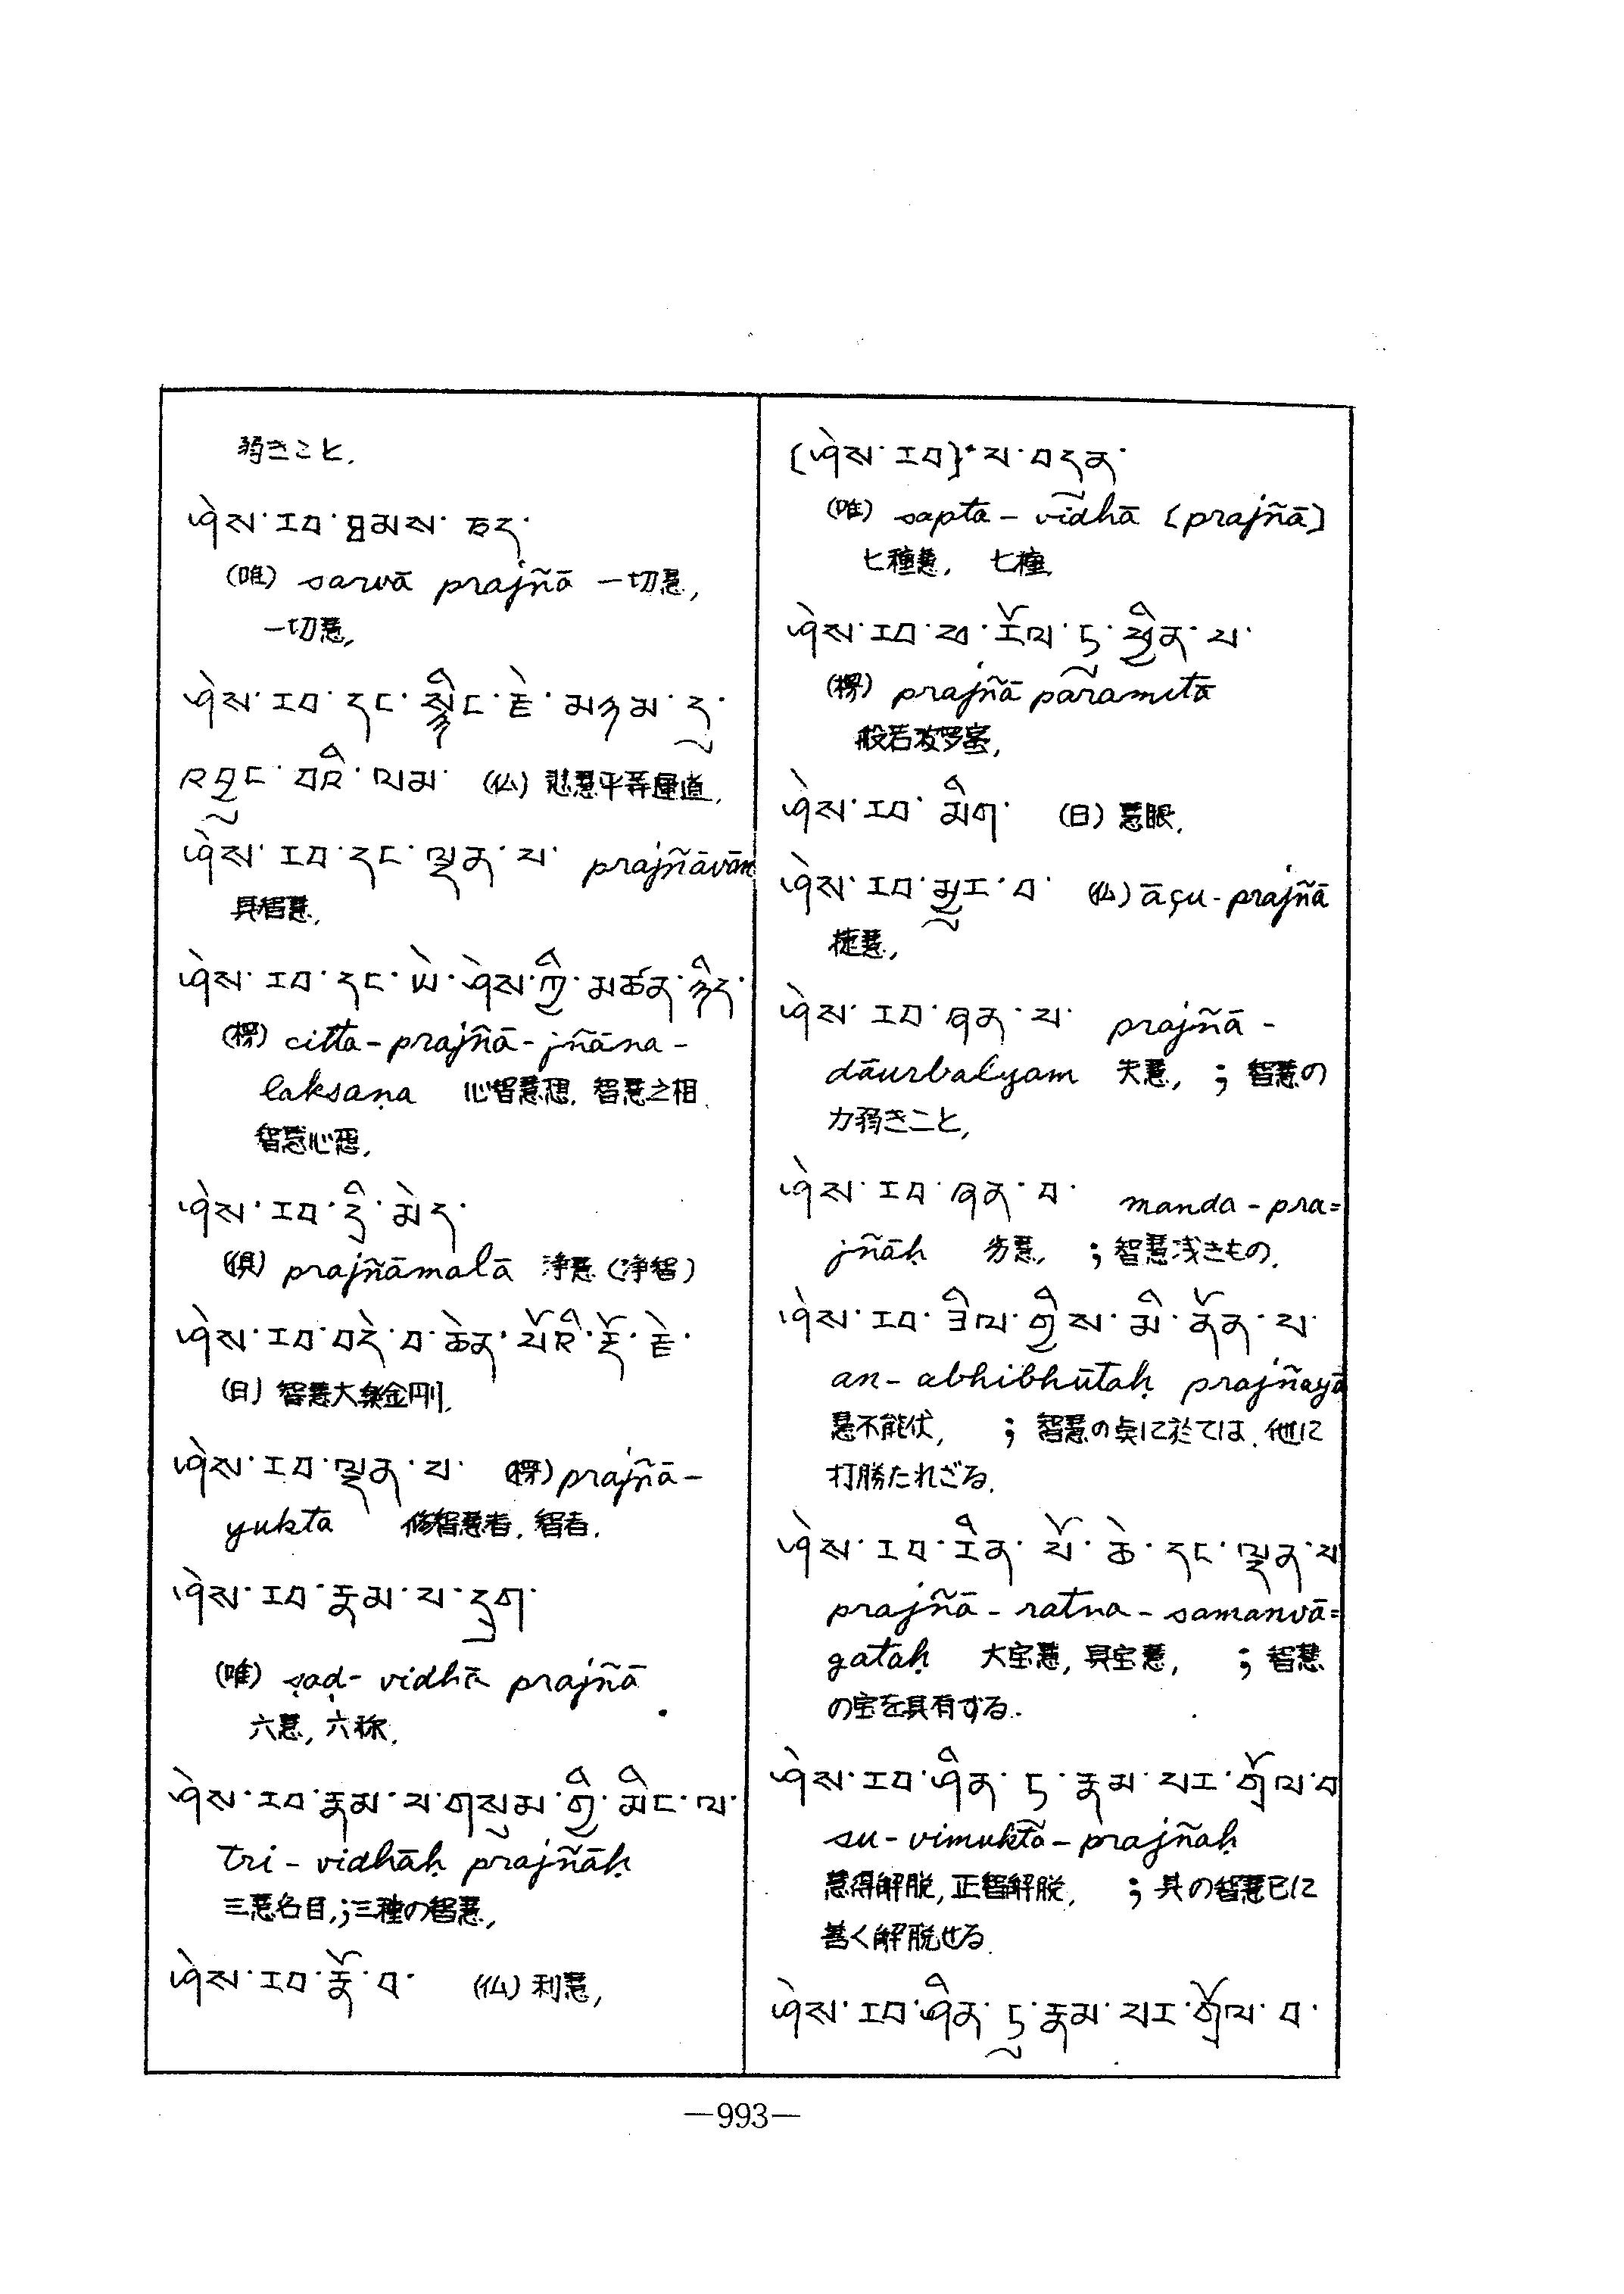 弱きこと.
ཤེས་རབ་ཐམས་ཅད་
(唯) sarvā prajñā 一切慧,
一切慧,
ཤེས་རབ་དང་སྙིང་རྗེ་མཉམ་དུ་
འབྱུང་བའི་ལམ་ (仏) 悲慧平等運道,
ཤེས་རབ་དང་ལྡན་པ་ prajñāvān
具智慧,
ཤེས་རབ་དང་ཡེ་ཤེས་ཀྱི་མཚན་ཉིད་
(楞) citta-prajñā-jñāna-
laksaṇa 心智慧想, 智慧之相,
智慧心想,
ཤེས་རབ་དྲི་མེད་
(倶) prajñāmalā 浄慧 (浄智)
ཤེས་རབ་བདེ་བ་ཆེན་པོའི་རྡོ་རྗེ་
(日) 智慧大楽金剛,
ཤེས་རབ་ལྡན་པ་ (楞) prajñā-
yuktā 修智慧者, 智者,
ཤེས་རབ་རྣམ་པ་དྲུག་
(唯) ṣaḍ-vidhā prajñā
六慧, 六称,
ཤེས་རབ་རྣམ་པ་གསུམ་གྱི་མིང་ལ་
tri-vidhāḥ prajñāḥ
三慧名目,;三種の智慧,
ཤེས་རབ་རྣོ་བ་ (仏) 利慧,
[ཤེས་རབ]་པ་བདན་
(唯) sapta-vidhā [prajñā]
七種慧, 七種,
ཤེས་རབ་ཕ་རོལ་ཏ་ཕྱིན་པ་
(楞) prajñā pāramitā
般若波罗蜜,
ཤེས་རབ་མིག་ (日) 慧眼,
ཤེས་རབ་མྱུར་བ་ (仏) āçu-prajñā
捷慧,
ཤེས་རབ་ཞན་པ་ prajñā-
dāurbalyam 失慧, ; 智慧の
力弱きこと,
ཤེས་རབ་ཞན་བ་ manda-pra=
jñāḥ 劣慧, ; 智慧浅きもの,
ཤེས་རབ་ཟིལ་གྱིས་མི་ནོན་པ་
an-abhibhūtaḥ prajñayā
慧不能伏, ; 智慧の点に於ては, 他に
打勝たれざる,
ཤེས་རབ་རིན་པོ་ཆེ་དང་ལྡན་པ
prajñā-ratna-samanvā=
gataḥ 大宝慧, 具宝慧, ; 智慧
の宝を具有する.
ཤེས་རབ་ཤིན་ཏ་རྣམ་པར་གྲོལ་བ
su-vimukta-prajñaḥ
慧得解脱, 正智解脱, ; 其の智慧已に
善く解脱せる,
ཤེས་རབ་ཤིན་ཏུ་རྣམ་པར་གྲོལ་བ་
—993—